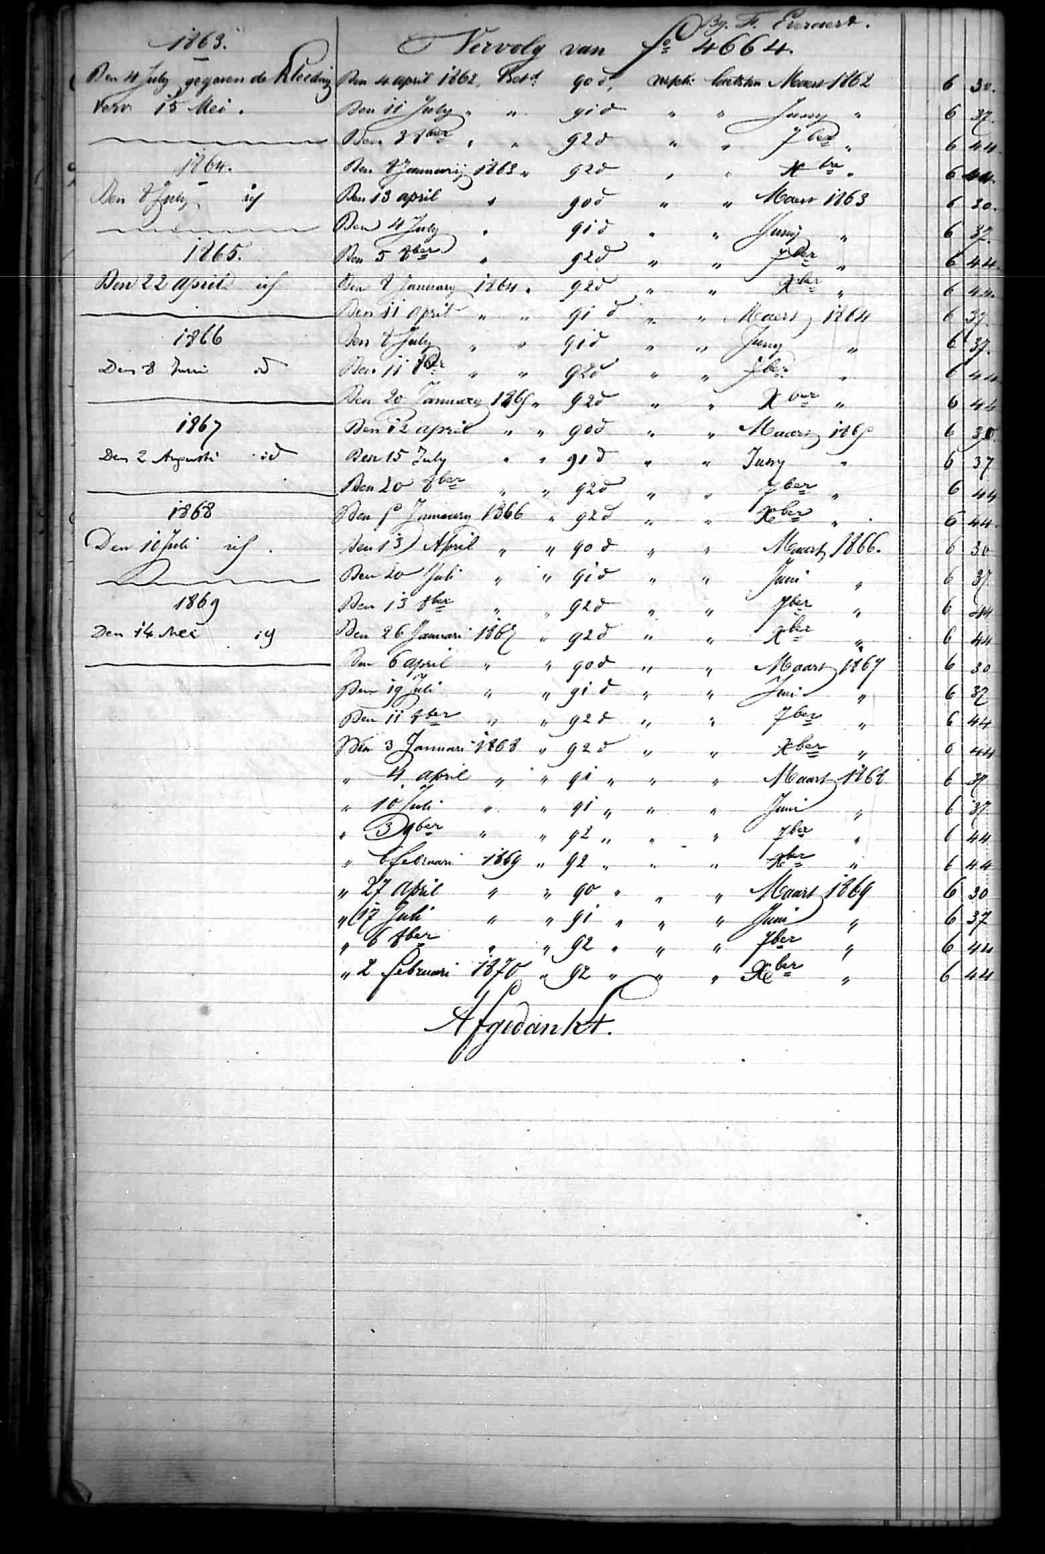 By F. Everaert.
Vervolg van fo 4664.
1863.
Den 4 July gegeven de Kleeding
verv 15 Mei.
1864.
Den 8 July id
1865.
Den 22 April id
1866
Den 8 Juni id
1867
Den 2 Augusti id
1868
Den 10 Juli id.
1869
Den 14 Mei id
Den 4 april 1862, Betd. 90 d, Maart 1862 6 30.
Den 11 July " " 91 d " " Juny " 6 37.
Den 3 8ber " " 92 d " " 7ber " 6 44
Den 8 Januarij 1863 " 92 d " " Xbre " 6 44.
Den 13 april " 90 d " " Maart 1863 6 30.
Den 4 July " 91 d " " Junij " 6 37
Den 5 8ber " 92 d " " 7ber " 6 44
Den 8 January 1864 " 92 d " " Xber " 6 44
Den 11 april " " 91 d " " Maert 1864 6 37
Den 8 July " " 91 d " " Juny " 6 37.
Den 11 8ber " " 92 d " " 7ber " 6 44
Den 20 January 1865 " 92 d " " Xber " 6 44
Den 12 april " " 90 d " " Maart 1865 6 30
Den 15 July " " 91 d " " Juny " 6 37
Den 20 8ber " " 92 d " " 7ber " 6 44
Den January 1866 " 92 d " " Xber " 6 44
Den 13 April " " 90 d " " Maart 1866. 6 30
Den 20 Juli " " 91 d " " Juni " 6 37
Den 13 8ber " " 92 d " " 7ber " 6 44
Den 26 Januari 1867 " 92 d " " Xber " 6 44
Den 6 april " " 90 d " " Maart 1867 6 30
Den 19 Juli " " 91 d " " Juni " 6 37
Den 11 8ber " " 92 d " " 7ber " 6 44
Den 3 Januari 1868 " 92 d " " Xber " 6 44
" 4 april " " 91 " " " Maart 1868 6 37
" 10 Juli " " 91 " " " Juni " 6 37
" 3 9ber " " 92 " " " 7ber " 6 44
" 6 februari 1869 " 92 " " " Xber " 6 44
" 27 april " " 90 " " " Maart 1869 6 30
" 17 Juli " " 91 " " " Juni " 6 37
" 6 8ber " " 92 " " " 7ber " 6 44
" 2 februari 1870 " 92 " " " Xber " 6 44
Afgedankt.